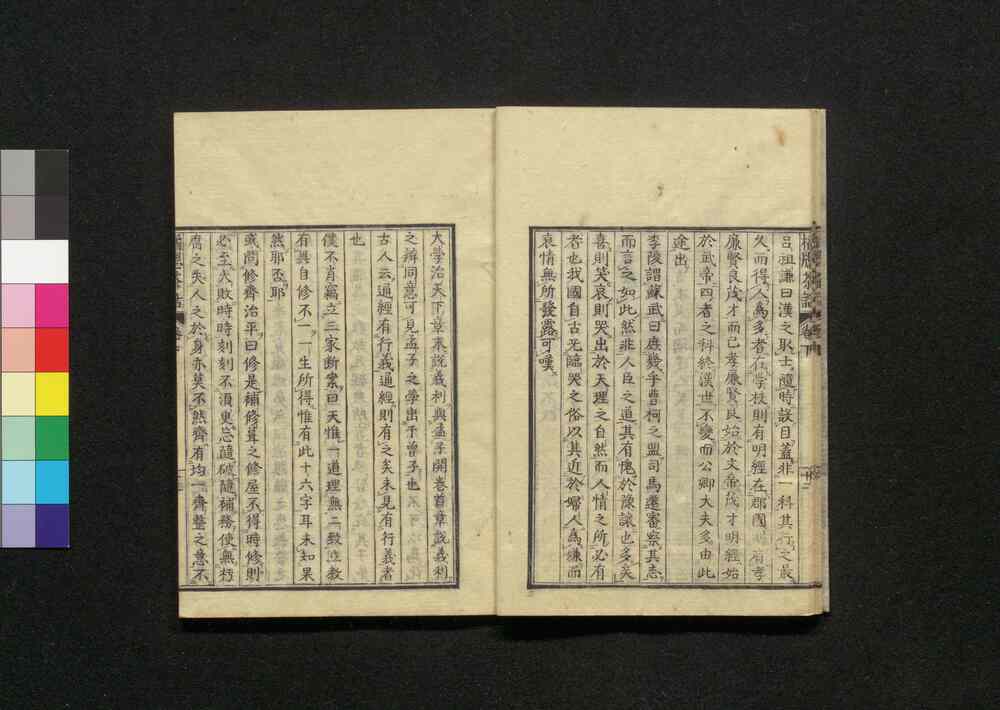 呂祖謙曰漢之取士隨時設目蓋非一科其行之最
久而得人為多者在學校則有明經在郡國則有孝
廉賢良茂才而已孝廉賢良始於文帝茂才明經始
於武帝四者之科終漢世不變而公卿大夫多由此
途出
李陵謂蘇武曰庶幾乎曹柯之盟司馬遷審察其志
而言之如此然非人臣之道其有愧於豫讓也多矣
喜則笑哀則哭出於天理之自然而人情之所必有
者也我國自古无臨哭之俗以其近於婦人為嫌而
哀情無所發露可嘆
大學治天下章末說義利與孟子開卷首章說義利
之辨同意可見孟子之學出于曾子也
古人云通經有行義通經則有之矣未見有行義者
也
僕不肖竊立三家斷案曰天惟一道理無二致立教
有異自修不一一生所得惟有此十六字耳未知果
然耶否耶
或問修齊治平曰修是補修葺之修屋不得時修則
必至大敗時時刻刻不須臾忘隨破隨補務使無朽
腐之失人之於身亦莫不然齊有均一齊整之意不